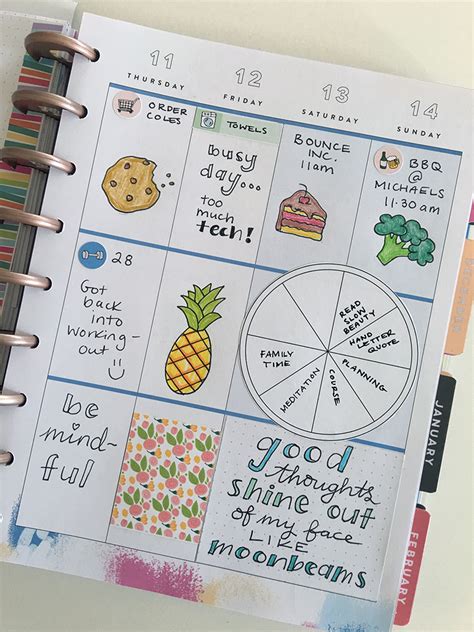 11
THURSDAY
12
FRIDAY
13
SATURDAY
14
SUNDAY
ORDER
COLES
TOWELS
busy
day...
too
much
tech!
BOUNCE
INC.
11am
BBQ
@
MICHAELS
11:30am
28
Got
back
into
working-
out
READ
SLOW
BEAUTY
HAND
LETTER
QUOTE
PLANNING
COURSE
MEDITATION
FAMILY
TIME
be
mind-
ful
good
thoughts
shine out
of my face
LIKE
moonbeams
JANUARY
FEBRUARY